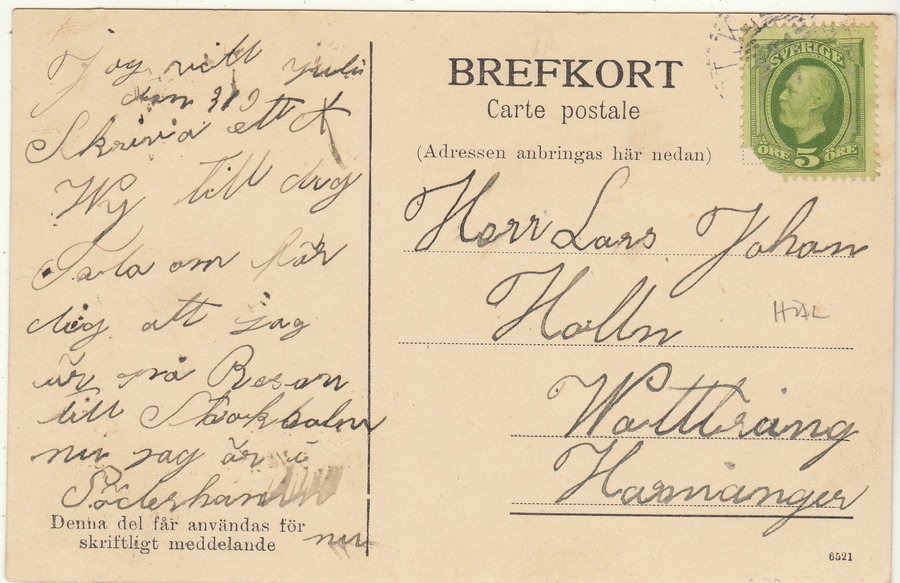 Jag vill
den 31/7 juli
Skriva ett
Wy till dig
Tala om för
dig att jag
är på Resan
till Stockholm
nu jag är i
Söderham
nu
Denna del får användas för
skriftligt meddelande
BREFKORT
Carte postale
(Adressen anbringas här nedan)
SVERIGE
ÖRE 5 ÖRE
Herr Lars Johan
Holln
Wattträng
Harmånger
HÄL
6521